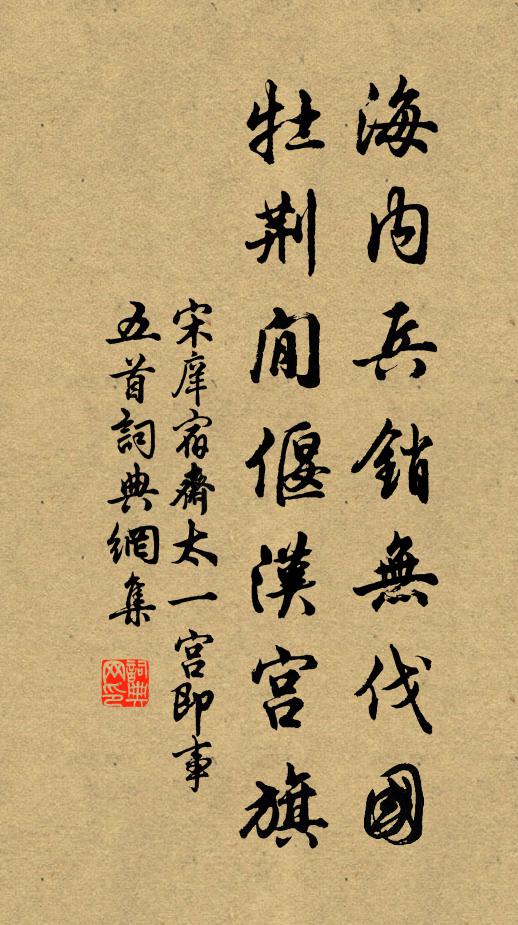 海内兵銷無伐國
牡荆閒偃漢宫旗
宋庠宿齋太一宫即事
五首詞典網集
詞典网印